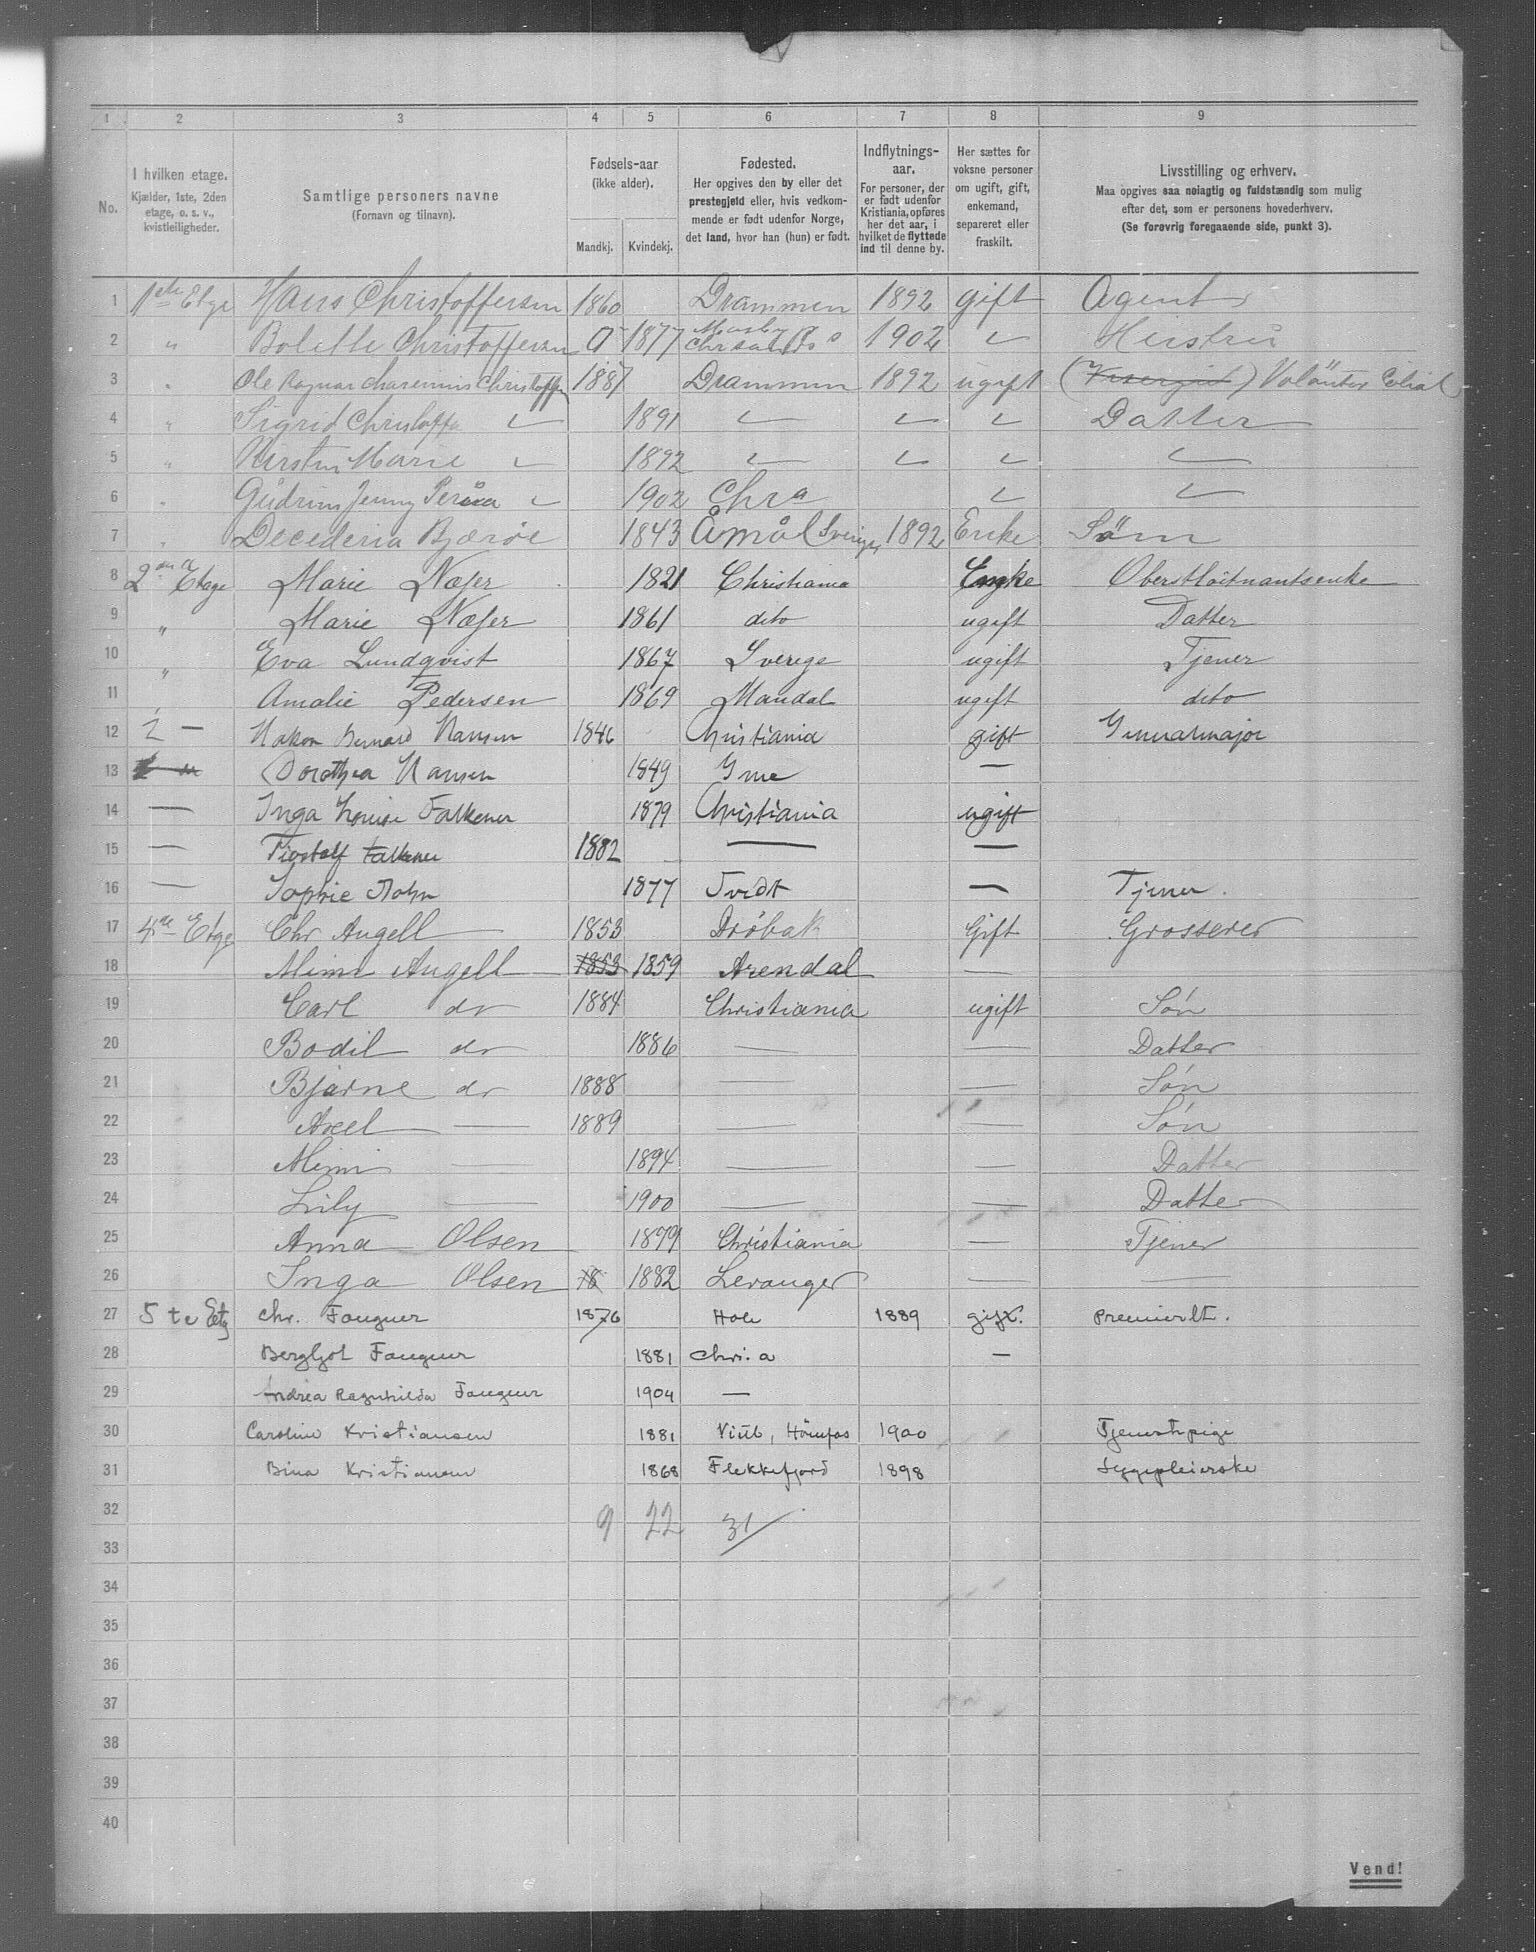 1 2 3 4 5 6 7 8 9
No.
I hvilken etage.
Kjælder, 1ste, 2den
etage, o. s. v.,
kvistleiligheder.
Samtlige personers navne
(Fornavn og tilnavn).
Fødsels-aar
(ikke alder).
Mandkj. Kvindekj.
Fødested.
Her opgives den by eller det
prestegjeld eller, hvis vedkom-
mende er født udenfor Norge,
det land, hvor han (hun) er født.
Indflytnings-
aar.
For personer, der
er født udenfor
Kristiania, opføres
her det aar, i
hvilket de flyttede
ind til denne by.
Her sættes for
voksne personer
om ugift, gift,
enkemand,
separeret eller
fraskilt.
Livsstilling og erhverv.
Maa opgives saa nøiagtig og fuldstændig som mulig
efter det, som er personens hovederhverv.
(Se forøvrig foregaaende side, punkt 3).
1 1ste Etge Hans Christoffersen 1860 Drammen 1892 gift Agent
2 " Bolette Christoffersen 1877 1902 " Hustru
3 " Ole Ragnar Christoffn 1887 Drammen 1892 ugift Volontør
4 " Sigrid Christoffe " 1891 " " " Datter
5 " Kirstin Marie " 1892 " " " "
6 " Gudrun Jenny " 1902 Chra " "
7 " Bjærøe 1843 Åmål Sverige 1892 Enke
8 2den Etage Marie Næser 1821 Christiania Enke Oberstløitnantsenke
9 " Marie Næser 1861 dito ugift Datter
10 " Eva Lundqvist 1867 Sverige ugift Tjener
11 Amalie Pedersen 1869 Mandal ugift dito
12 2 — Hakon Bernard Hansen 1846 Christiania gift Generalmajor
13 Dorothea Hansen 1849 —
14 — Inga Louise Falkener 1879 Christiania ugift
15 — Falkener 1882 — —
16 — Sophie 1877 — Tjener.
17 4de Etge Chr Angell 1853 Drøbak Gift Grosserer
18 Mimi Angell 1853 1859 Arendal —
19 Carl do 1884 Christiania ugift Søn
20 Bodil do 1886 — — Datter
21 Bjarne do 1888 — — Søn
22 Axel — 1889 — — Søn
23 Mimi — 1894 — — Datter
24 Lily — 1900 — — Datter
25 Anna Olsen 1879 Christiania — Tjener
26 Inga Olsen 18 1882 Levanger — —
27 5te Etg Chr. Fougner 1876 Hole 1889 gift. Premierlt.
28 Bergljot Fougner 1881 Chri.a —
29 Andrea Ragnhilda Fougner 1904 —
30 Caroline Kristiansen 1881 Hønefos 1900 Tjenestepige
31 Bina Kristiansen 1868 Flekkefjord 1898 Sygepleierske
32 9 22 31
33
34
35
36
37
38
39
40
Vend!